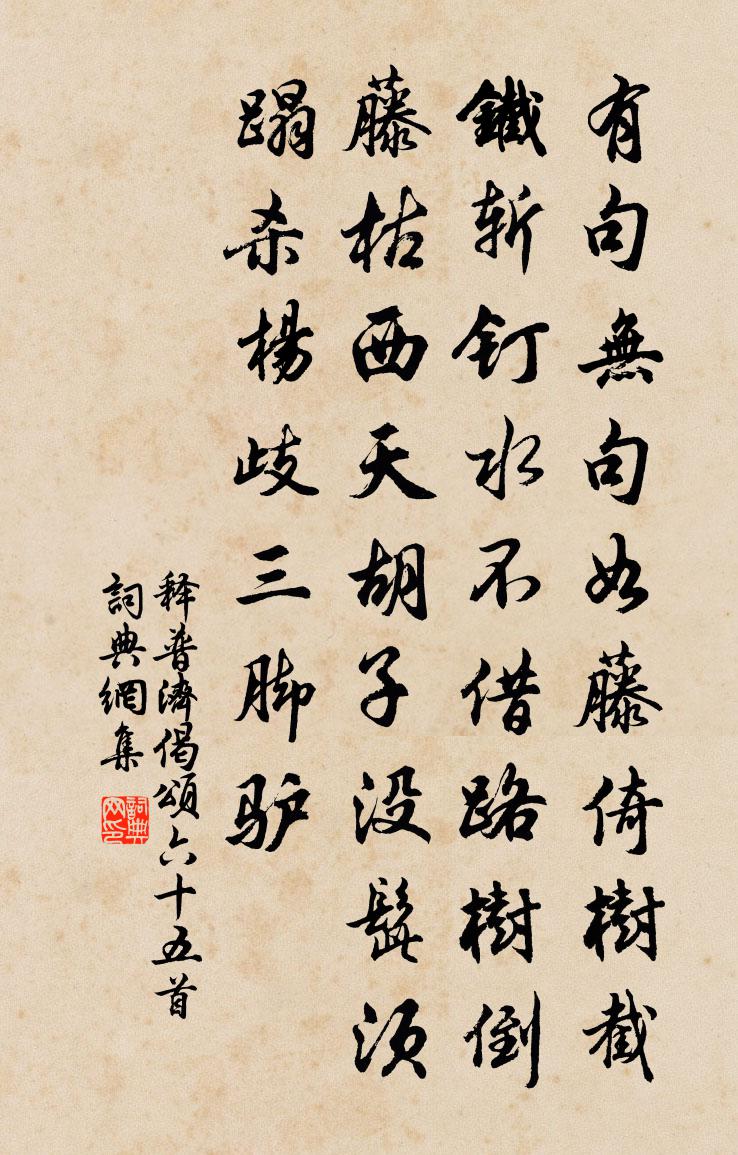 有句無句如藤倚樹截
鐵斬釘水不借路樹倒
藤枯西天胡子没髭须
蹋杀楊歧三脚驴
释普濟偈頌六十五首
詞典網集
詞典网印